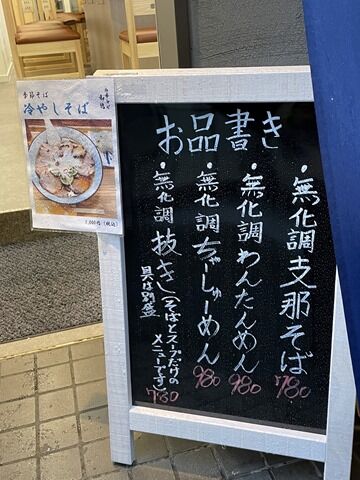 お品書き
・無化調支那そば
780
・無化調わんたんめん
980
・無化調ちゃーしゅーめん
980
・無化調抜き(そばとスープだけの
メニューです)
具は別盛
780
季節そば
冷やしそば
1,000円(税込)